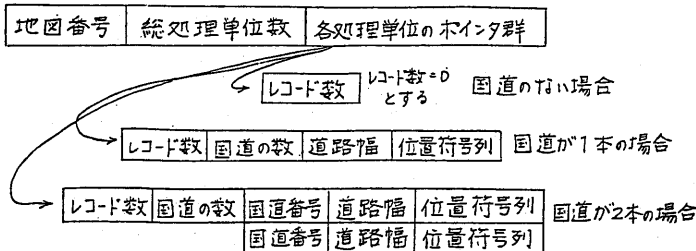 地図番号 総処理単位数 各処理単位のポインタ群
レコード数 レコード数=0とする 国道のない場合
レコード数 国道の数 道路幅 位置符号列 国道が1本の場合
レコード数 国道の数 国道番号 道路幅 位置符号列 国道が2本の場合
国道番号 道路幅 位置符号列